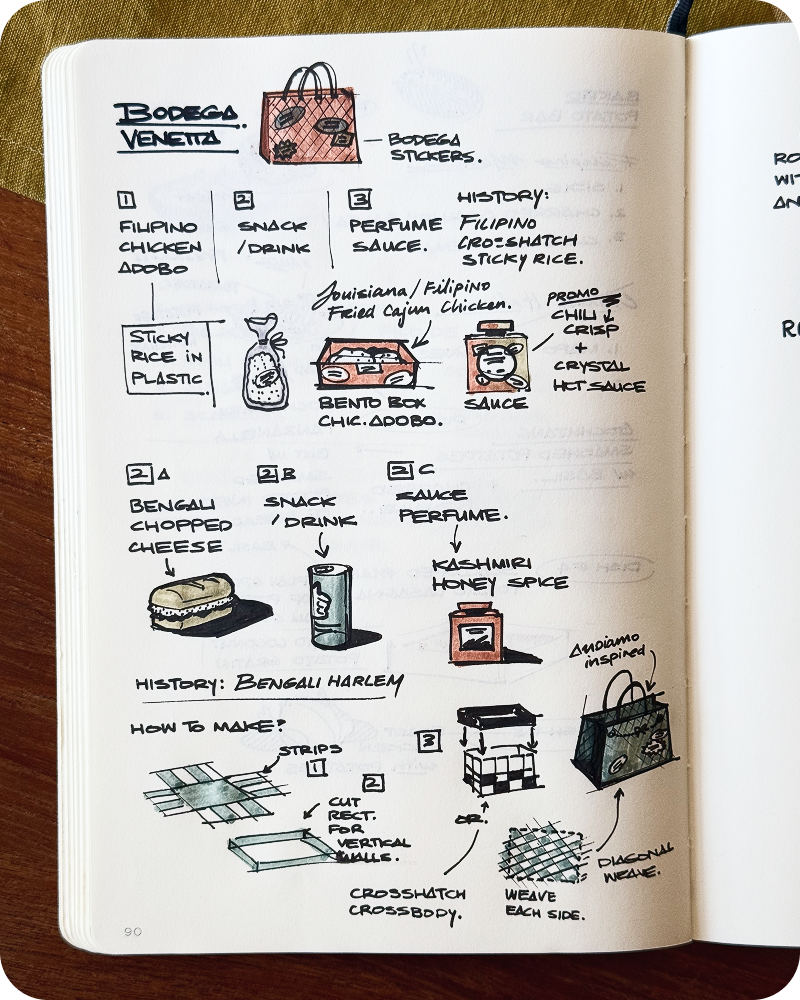 BODEGA
VENETTA
BODEGA
STICKERS.
1
FILIPINO
CHICKEN
ADOBO
2
SNACK
/DRINK
3
PERFUME
SAUCE.
HISTORY:
FILIPINO
CROSSHATCH
STICKY RICE.
STICKY
RICE IN
PLASTIC
Louisiana/Filipino
Fried Cajun Chicken.
BENTO BOX
CHIC. ADOBO.
SAUCE
PROMO
CHILI
CRISP
+
CRYSTAL
HOT SAUCE
2 A
BENGALI
CHOPPED
CHEESE
2 B
SNACK
/DRINK
2 C
SAUCE
PERFUME.
KASHMIRI
HONEY SPICE
HISTORY: BENGALI HARLEM
Andiamo
inspired
HOW TO MAKE?
STRIPS
1
2
CUT
RECT.
FOR
VERTICAL
WALLS.
3
OR.
CROSSHATCH
CROSSBODY.
WEAVE
EACH SIDE.
DIAGONAL
WEAVE.
90